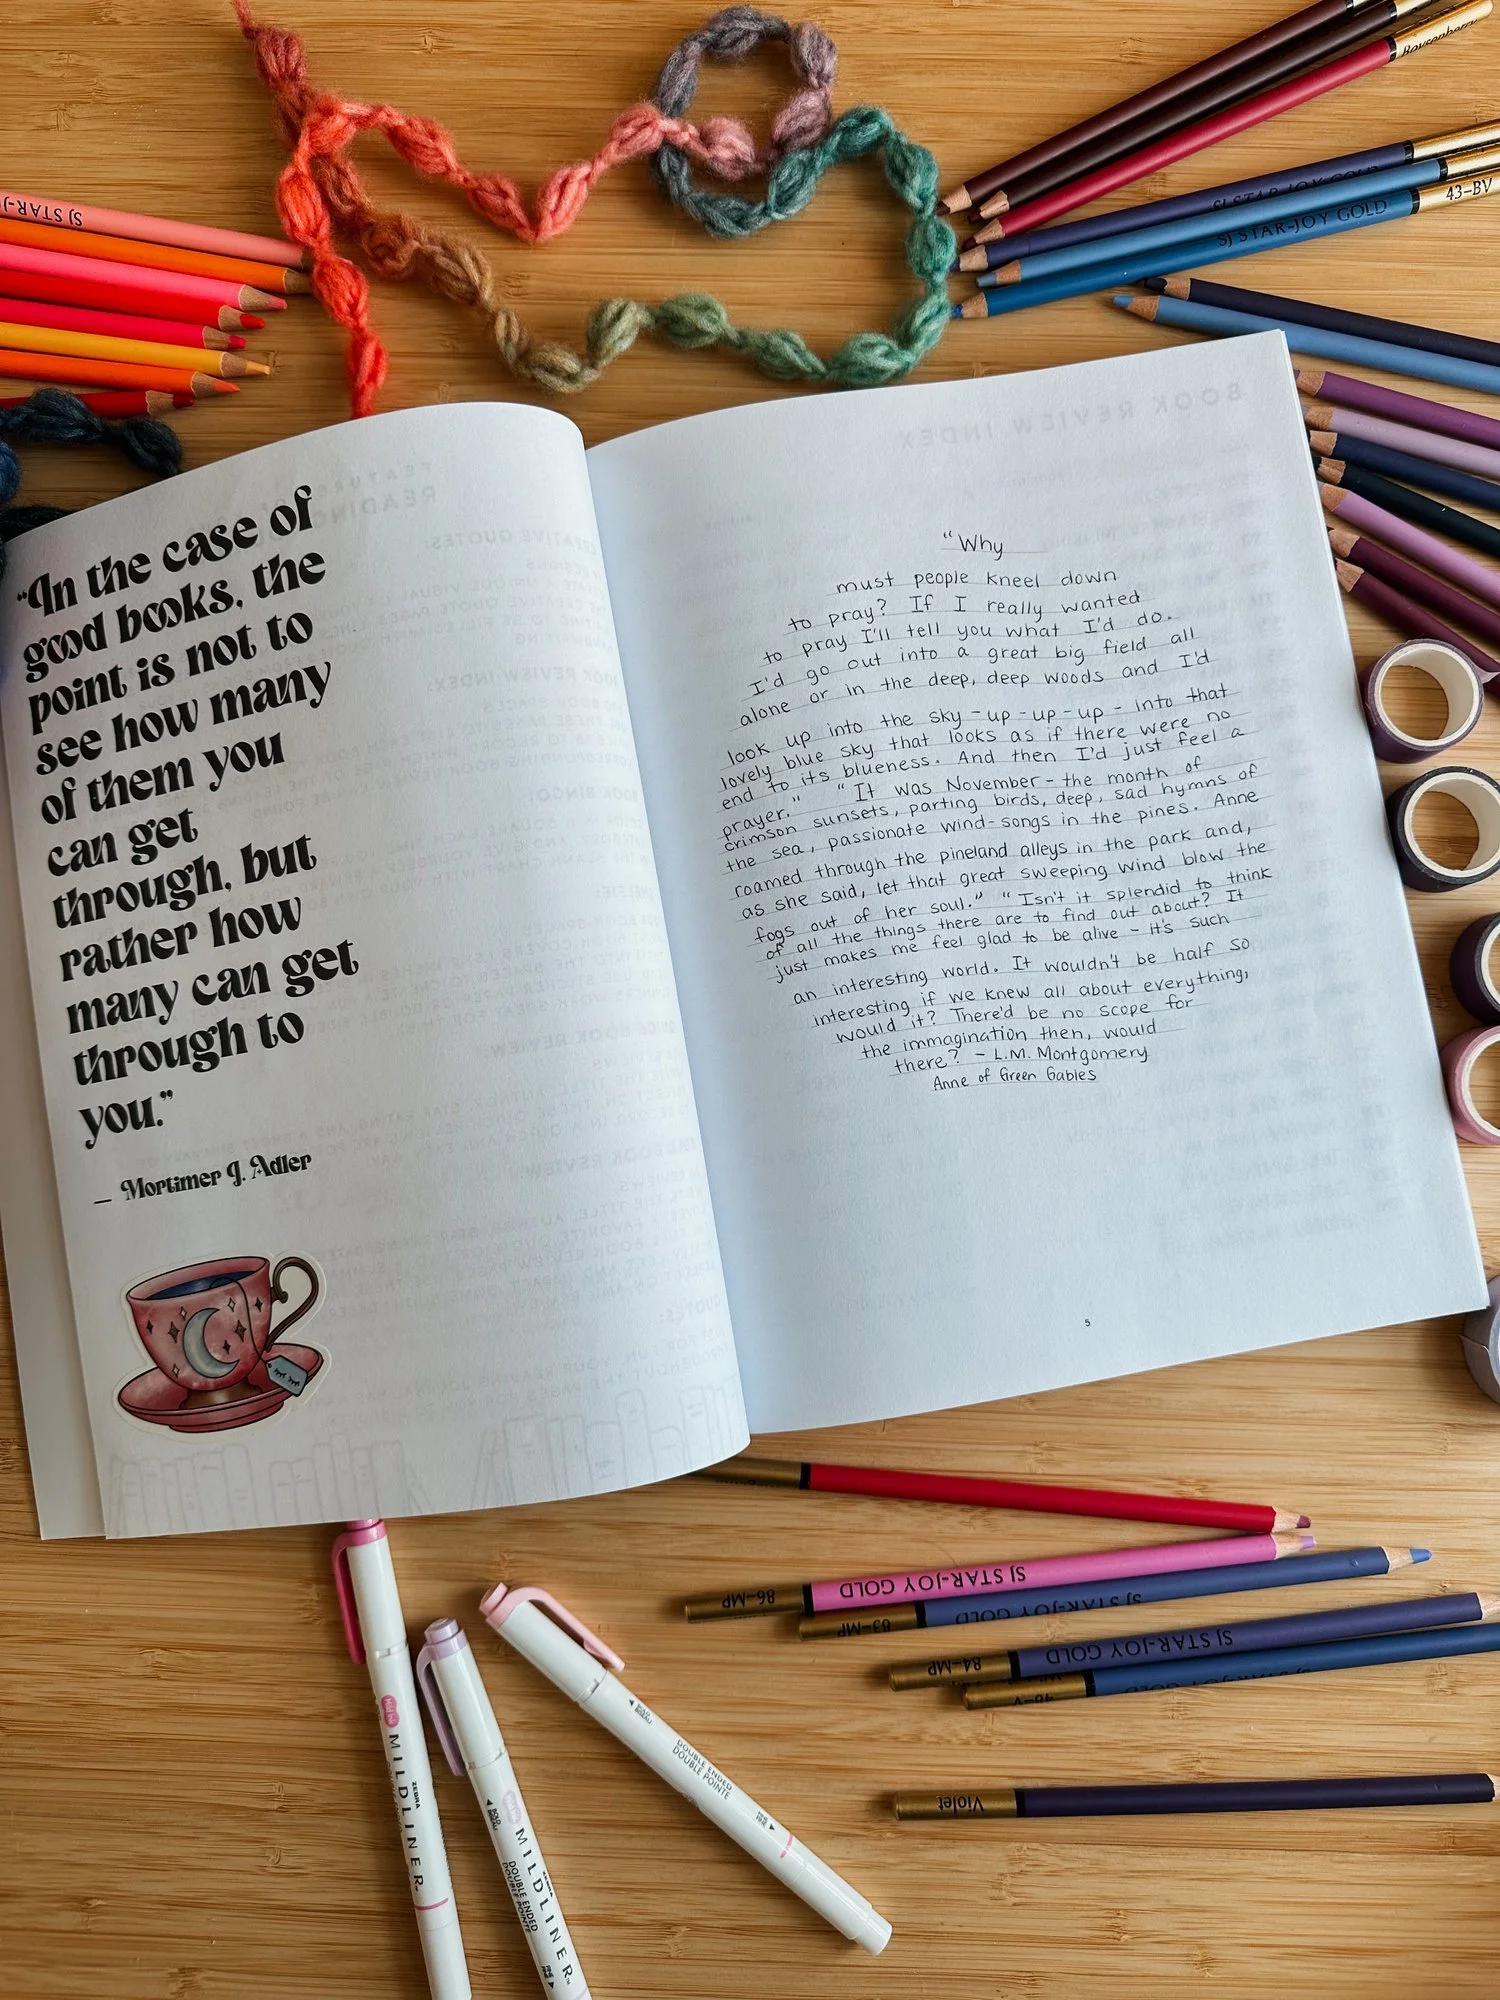 “In the case of
good books, the
point is not to
see how many
of them you
can get
through, but
rather how
many can get
through to
you.”
— Mortimer J. Adler
“Why
must people kneel down
to pray? If I really wanted
to pray I'll tell you what I'd do.
I'd go out into a great big field all
alone or in the deep, deep woods and I'd
look up into the sky - up - up - up - into that
lovely blue sky that looks as if there were no
end to its blueness. And then I'd just feel a
prayer.” “It was November - the month of
crimson sunsets, parting birds, deep, sad hymns of
the sea, passionate wind-songs in the pines. Anne
roamed through the pineland alleys in the park and,
as she said, let that great sweeping wind blow the
fogs out of her soul.” “Isn't it splendid to think
of all the things there are to find out about? It
just makes me feel glad to be alive - it's such
an interesting world. It wouldn't be half so
interesting if we knew all about everything,
would it? There'd be no scope for
the immagination then, would
there? - L.M. Montgomery
Anne of Green Gables
5
BOOK REVIEW INDEX
SJ STAR-J
Boysenberry
SJ STAR-JOY GOLD
SJ STAR-JOY GOLD
43-BV
86-MP SJ STAR-JOY GOLD
83-MP SJ STAR-JOY GOLD
84-MP SJ STAR-JOY GOLD
Violet
ZEBRA
MILDLINER
ZEBRA
MILDLINER
DOUBLE ENDED
DOUBLE POINTE
DOUBLE ENDED
DOUBLE POINTE